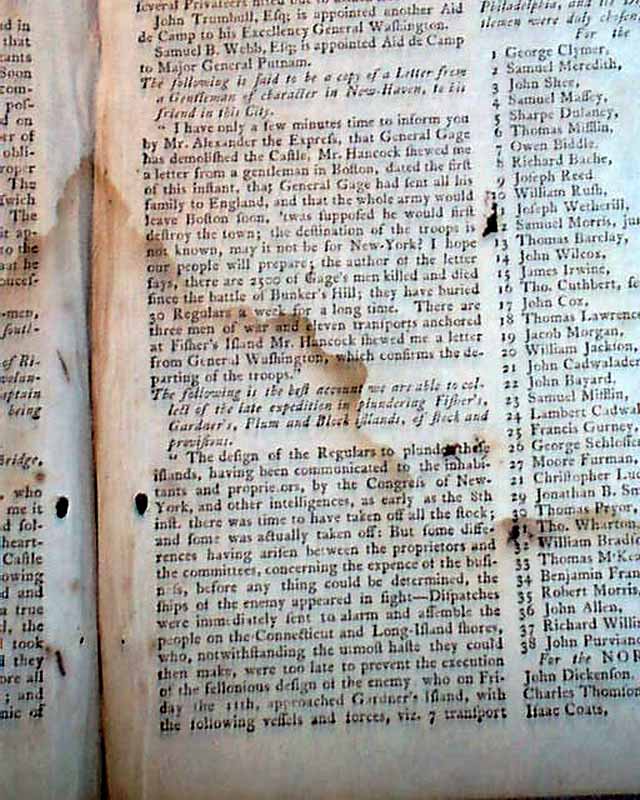 d in
that
tants
Soon
com-
pos-
d on
er of
obli-
roper
The
swich
The
it ap-
to the
hat he
oncess-
-men,
south-
of Ri-
volun-
aptain
being
Bridge,
who
me it
d sol-
heart-
Castle
owing
d and
a true
d, the
took
d they
ore all
; and
nic of
several Privateers fitted out to
John Trumbull, Esq; is appointed another Aid
de Camp to his Excellency General Washington.
Samuel B. Webb, Esq; is appointed Aid de Camp
to Major General Putnam.
The following is said to be a copy of a Letter from
a Gentleman of character in New-Haven, to his
friend in this City.
" I have only a few minutes time to inform you
by Mr. Alexander the Express, that General Gage
has demolished the Castle, Mr. Hancock shewed me
a letter from a gentleman in Boston, dated the first
of this instant, that General Gage had sent all his
family to England, and that the whole army would
leave Boston soon, 'twas supposed he would first
destroy the town; the destination of the troops is
not known, may it not be for New-York? I hope
our people will prepare; the author of the letter
says, there are 2500 of Gage's men killed and died
since the battle of Bunker's Hill; they have buried
30 Regulars a week for a long time. There are
three men of war and seven transports anchored
at Fisher's Island Mr. Hancock shewed me a letter
from General Washington, which confirms the de-
parting of the troops."
The following is the best account we are able to col-
lect of the late expedition in plundering Fisher's,
Gardner's, Plum and Block islands, of stock and
provisions.
" The design of the Regulars to plunder these
islands, having been communicated to the inhabi-
tants and proprietors, by the Congress of New-
York, and other intelligences, as early as the 8th
inst. there was time to have taken off all the stock;
and some was actually taken off: But some diffe-
rences having arisen between the proprietors and
the committees, concerning the expence of the busi-
ness, before any thing could be determined, the
ships of the enemy appeared in sight—Dispatches
were immediately sent to alarm and assemble the
people on the Connecticut and Long-Island shores,
who, notwithstanding the utmost haste they could
then make, were too late to prevent the execution
of the fellonious design of the enemy who on Fri-
day the 11th, approached Gardner's Island, with
the following vessels and forces, viz. 7 transport
Philadelphia, and its
tlemen were duly chosen
For the
1 George Clymer,
2 Samuel Meredith,
3 John Shee,
4 Samuel Massey,
5 Sharpe Dulaney,
6 Thomas Mifflin,
7 Owen Biddle.
8 Richard Bache,
9 Joseph Reed
10 William Rush,
11 Joseph Wetherill,
12 Samuel Morris, jun
13 Thomas Barclay,
14 John Wilcox,
15 James Irwine,
16 Tho. Cuthbert, se
17 John Cox,
18 Thomas Lawrence
19 Jacob Morgan,
20 William Jackson,
21 John Cadwalader
22 John Bayard,
23 Samuel Mifflin,
24 Lambert Cadwal
25 Francis Gurney,
26 George Schlosse
27 Moore Furman,
28 Christopher Lud
29 Jonathan B. Sm
30 Thomas Pryor,
31 Tho. Wharton
32 William Bradfo
33 Thomas M'Kea
34 Benjamin Fran
35 Robert Morris,
36 John Allen,
37 Richard Willin
38 John Purvian
For the NOR
John Dickenson.
Charles Thomson
Isaac Coats,